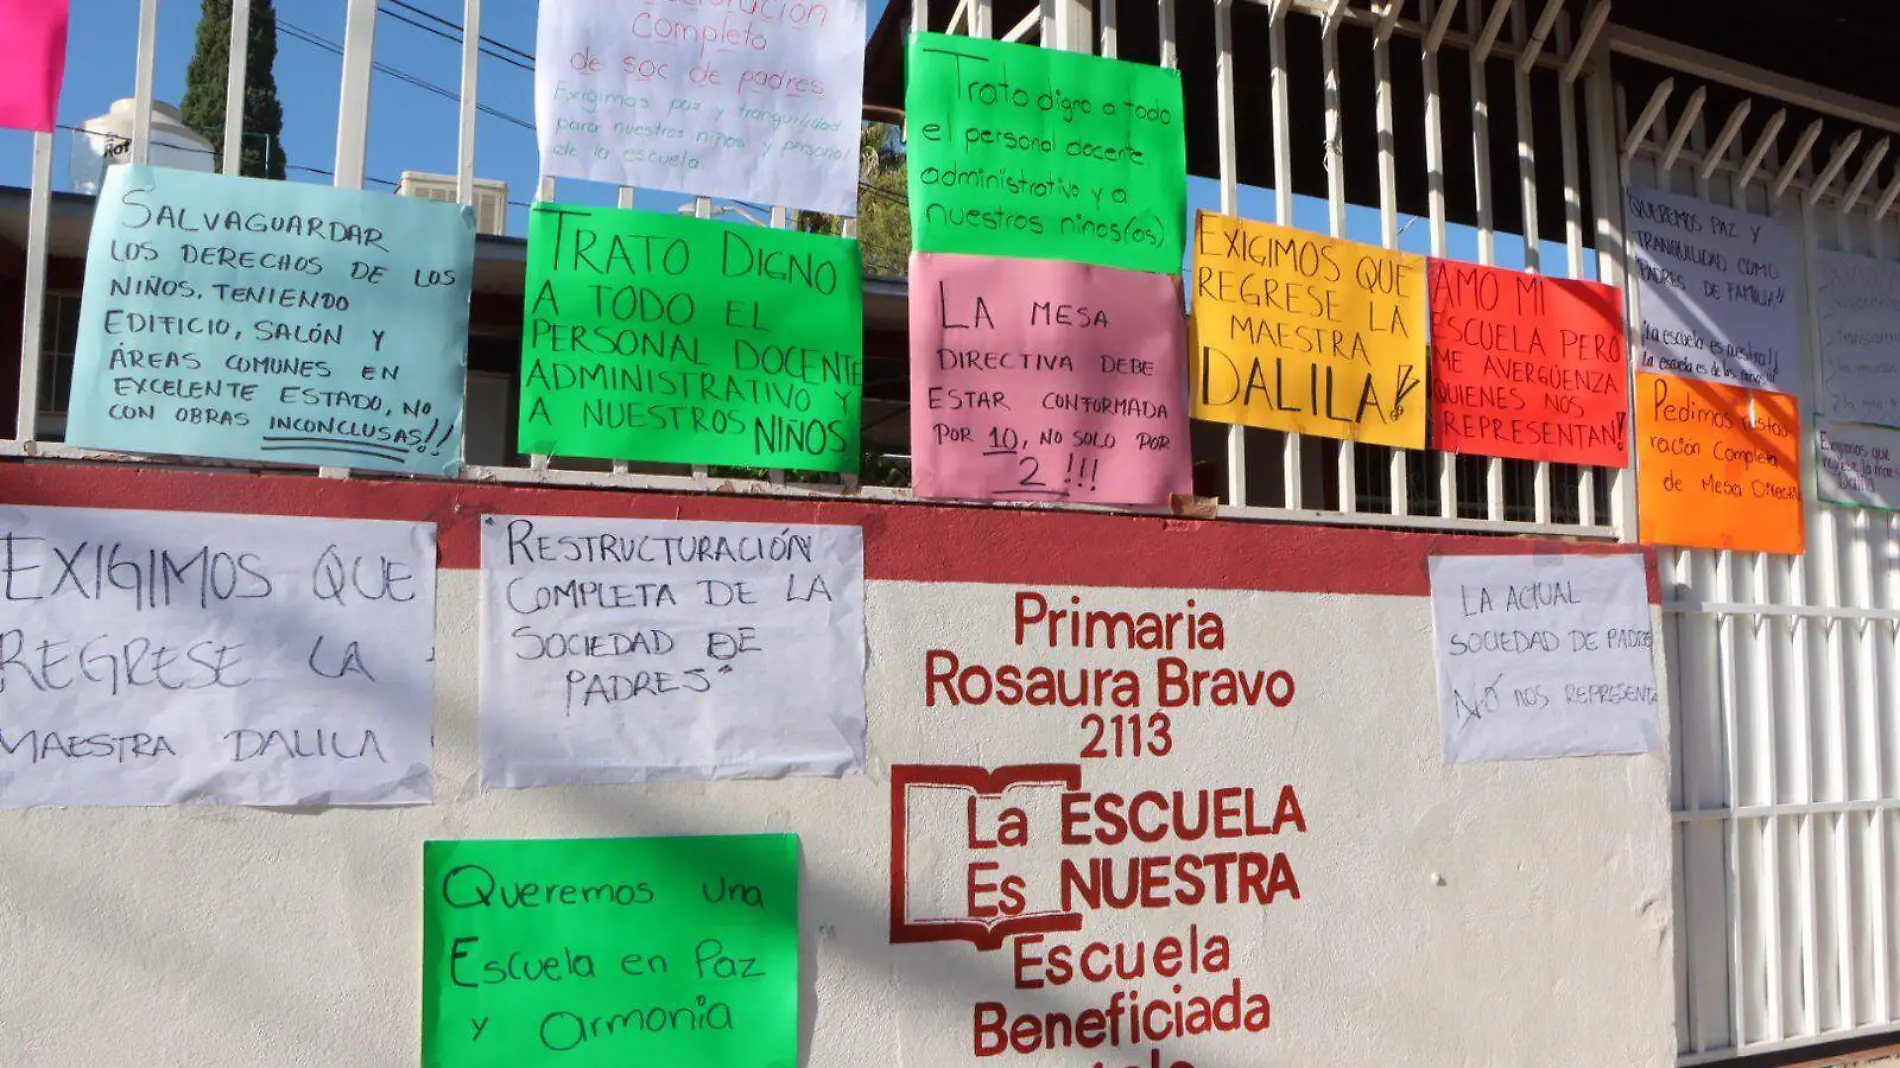 Completa
de soc de padres
Exigimos paz y tranquilidad
para nuestros niños y personal
de la escuela
Trato digno a todo
el personal docente,
administrativo y a
nuestros niños(os)
SALVAGUARDAR
LOS DERECHOS DE LOS
NIÑOS. TENIENDO
EDIFICIO, SALÓN Y
ÁREAS COMUNES EN
EXCELENTE ESTADO, NO
CON OBRAS INCONCLUSAS!!
TRATO DIGNO
A TODO EL
PERSONAL DOCENTE
ADMINISTRATIVO Y
A NUESTROS NIÑOS
LA MESA
DIRECTIVA DEBE
ESTAR CONFORMADA
POR 10, NO SOLO POR
2!!!
EXIGIMOS QUE
REGRESE LA
MAESTRA
DALILA!
AMO MI
ESCUELA PERO
ME AVERGÜENZA
QUIENES NOS
REPRESENTAN!
"QUEREMOS PAZ Y
TRANQUILIDAD COMO
PADRES DE FAMILIA"
¡La escuela es nuestra!!
La escuela es de los
Pedimos restau
ración Completa
de Mesa Directi
Exigimos que
regrese la maes
Dalila
EXIGIMOS QUE
REGRESE LA
MAESTRA DALILA
"RESTRUCTURACIÓN
COMPLETA DE LA
SOCIEDAD DE
PADRES"
LA ACTUAL
SOCIEDAD DE PADRES
NO NOS REPRESENTA
Primaria
Rosaura Bravo
2113
La ESCUELA
Es NUESTRA
Escuela
Beneficiada
Queremos una
Escuela en Paz
y armonia